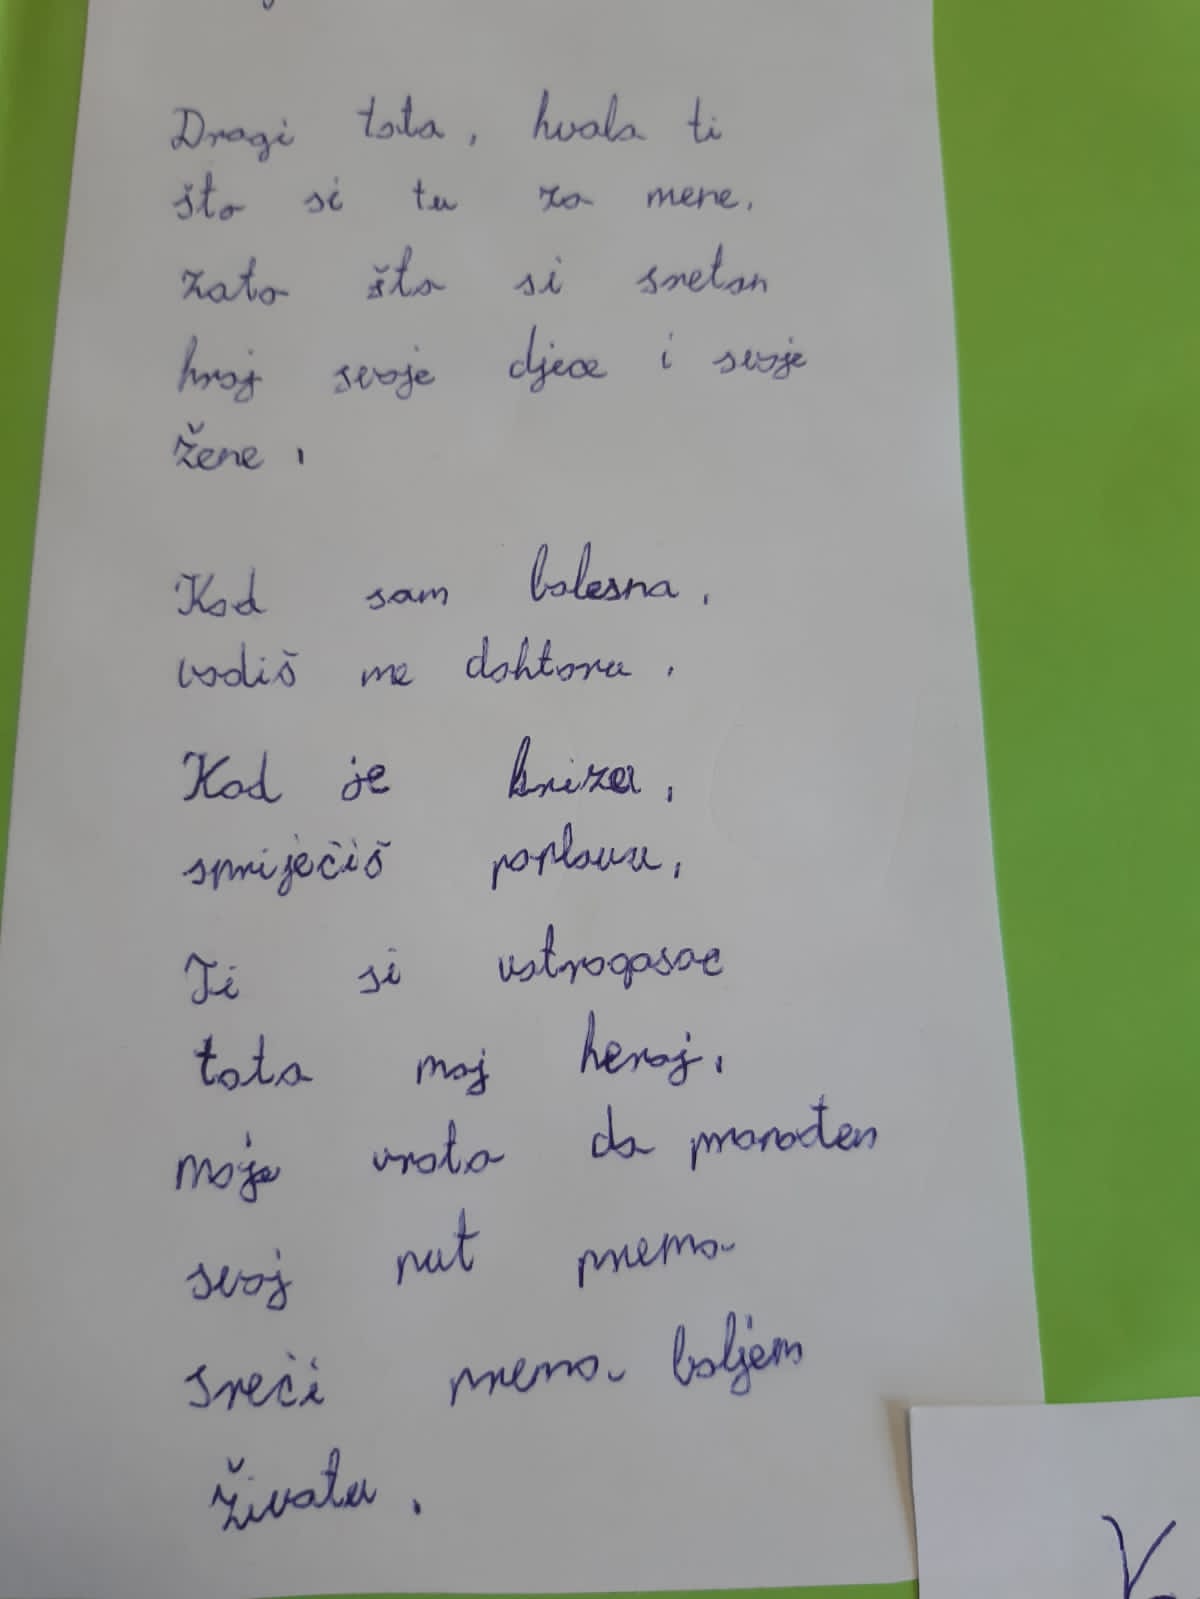 Dragi tata, hvala ti
što si tu za mene,
zato što si sretan
kraj svoje djece i svoje
žene.
Kad sam bolesna,
vodiš me doktoru.
Kad je kriza,
spriječiš poplavu,
Ti si vatrogasac
tata moj heroj,
moja vrata da pronađem
svoj put prema
sreći prema boljem
životu.